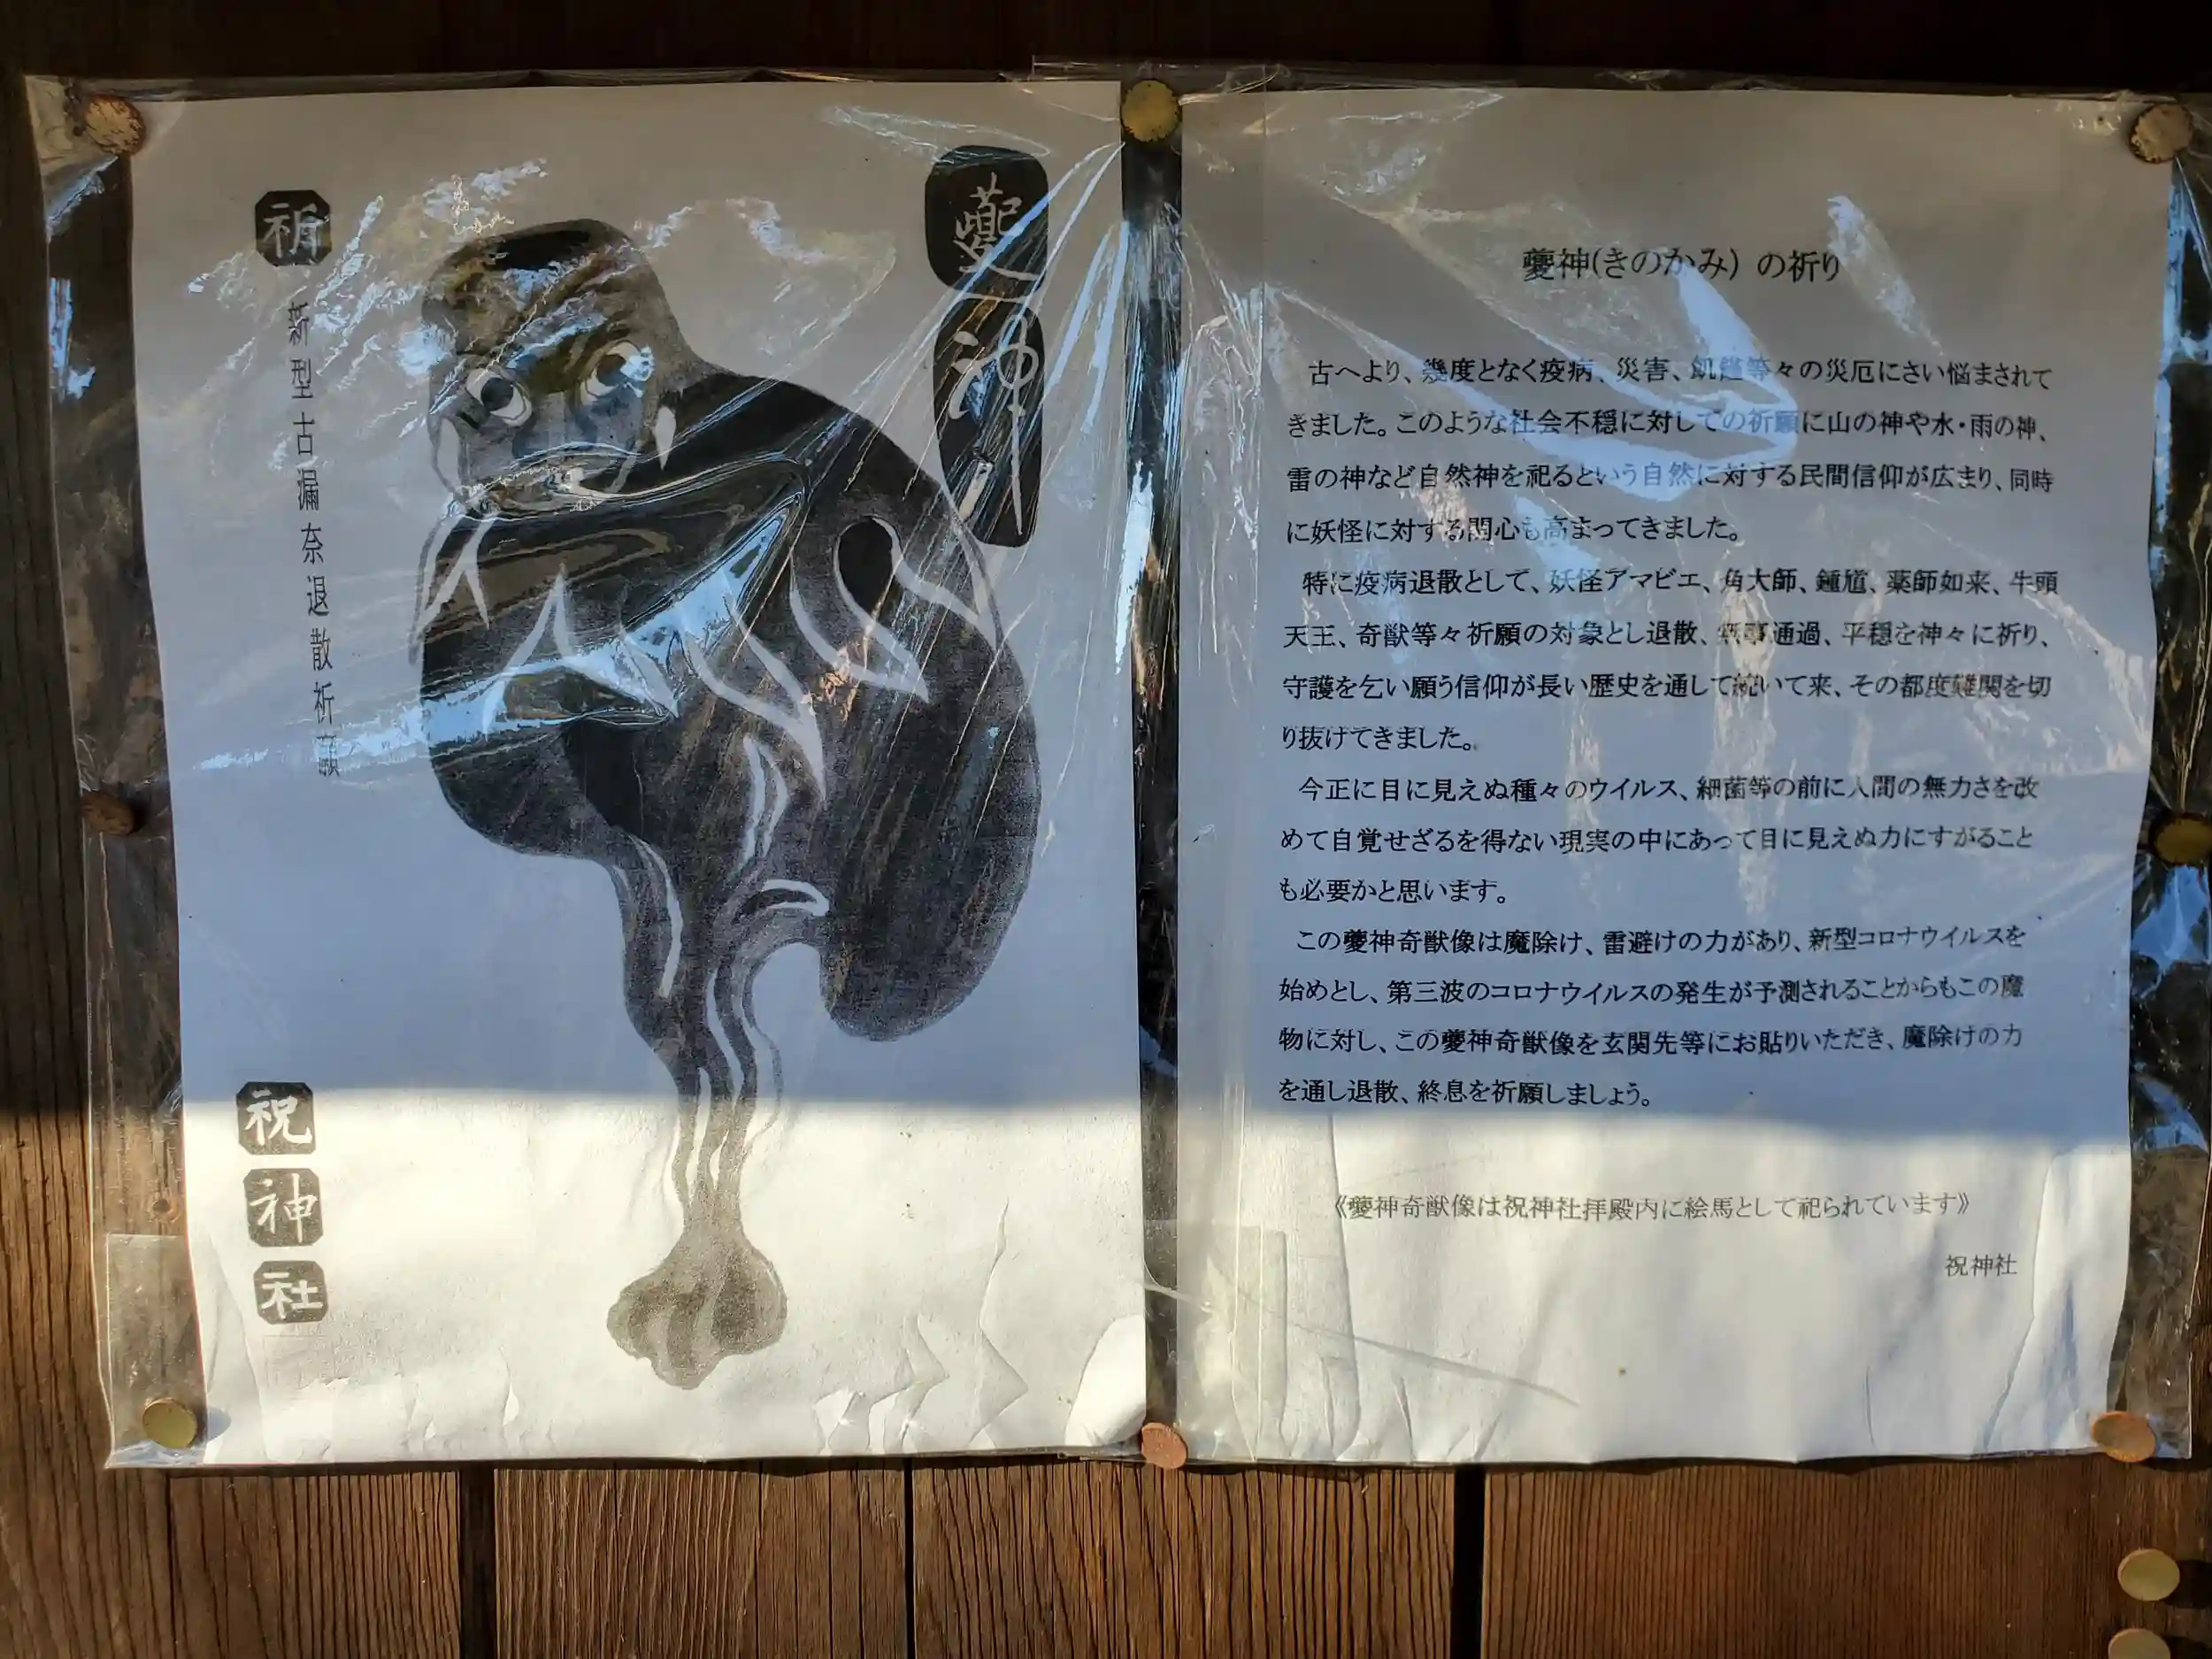 夔神
祈
新型古漏奈退散祈願
祝神社
夔神(きのかみ) の祈り
古へより、幾度となく疫病、災害、飢饉等々の災厄にさい悩まされて
きました。このような社会不穏に対しての祈願に山の神や水・雨の神、
雷の神など自然神を祀るという自然に対する民間信仰が広まり、同時
に妖怪に対する関心も高まってきました。
特に疫病退散として、妖怪アマビエ、角大師、鍾馗、薬師如来、牛頭
天王、奇獣等々祈願の対象とし退散、無事通過、平穏を神々に祈り、
守護を乞い願う信仰が長い歴史を通して続いて来、その都度難関を切
り抜けてきました。
今正に目に見えぬ種々のウイルス、細菌等の前に人間の無力さを改
めて自覚せざるを得ない現実の中にあって目に見えぬ力にすがること
も必要かと思います。
この夔神奇獣像は魔除け、雷避けの力があり、新型コロナウイルスを
始めとし、第三波のコロナウイルスの発生が予測されることからもこの魔
物に対し、この夔神奇獣像を玄関先等にお貼りいただき、魔除けの力
を通し退散、終息を祈願しましょう。
《夔神奇獣像は祝神社拝殿内に絵馬として祀られています》
祝神社